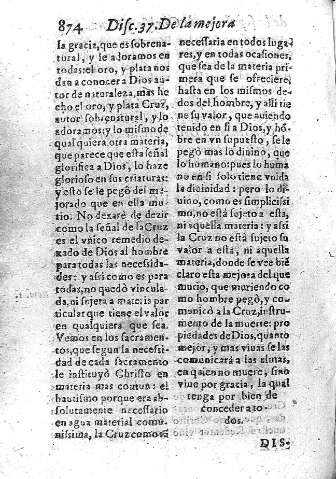 874 Disc. 37. De la mejora
la gracia, que es sobrena-
tural, y le adoramos en
todas: el oro, y plata nos
dan a conocer a Dios au-
tor de naturaleza, mas he
cho el oro, y plata Cruz,
autor sobrenatural, y lo
adoramos: y lo mismo de
qualquiera otra materia,
que parece que esta señal
glorifica a Dios, lo haze
glorioso en sus criaturas:
y esto se le pegò del me-
jorado que en ella mu-
rio. No dexarè de dezir
como la señal de la Cruz
es el vnico remedio de-
xado de Dios al hombre
para todas las necessida-
des: y assi como es para
todas, no quedò vincula-
da, ni sujeta a materia par
ticular que tiene el valor
en qualquiera que sea.
Vemos en los sacramen-
tos, que segun la necessi-
dad de cada sacramento
le instituyò Christo en
materia mas comun: el
bautismo porque era ab-
solutamente necessario
en agua material comu-
nissima, la Cruz como es
necessaria en todos luga-
res, y en todas ocasiones,
que sea de la materia pri-
mera que se ofreciere,
hasta en los mismos de-
dos del hombre, y alli tie
ne su valor, que auiendo
tenido en si a Dios, y hō-
bre en vn supuesto, se le
pegò mas lo diuino, que
lo humano: pues lo huma
no en si solo tiene vnida
la diuinidad: pero lo di-
uino, como es simplicissi
mo, no està sujeto a esta,
ni aquella materia: y assi
la Cruz no està sujeto su
valor a esta, ni aquella
materia, donde se vee biē
claro esta mejora del que
murio, que muriendo co
mo hombre pegò, y co-
municò a la Cruz, instru-
mento de la muerte: pro
piedades de Dios, quanto
mejor, y mas viuas se las
comunicarà a las almas,
en quien no muere, sino
viue por gracia, la qual
tenga por bien de
conceder a to-
dos.
DIS-